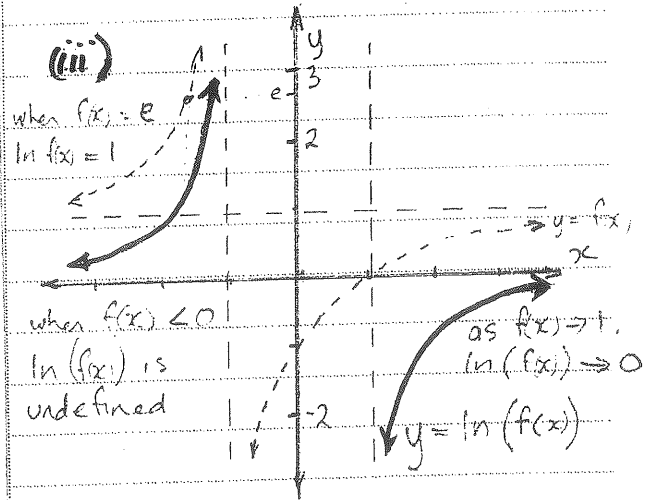 (iii)
y
3
e
when f(x) = e
ln f(x) = 1
2
y = f(x)
x
when f(x) < 0
ln (f(x)) is
undefined
as f(x) → 1.
ln (f(x)) → 0
-2
y = ln (f(x))